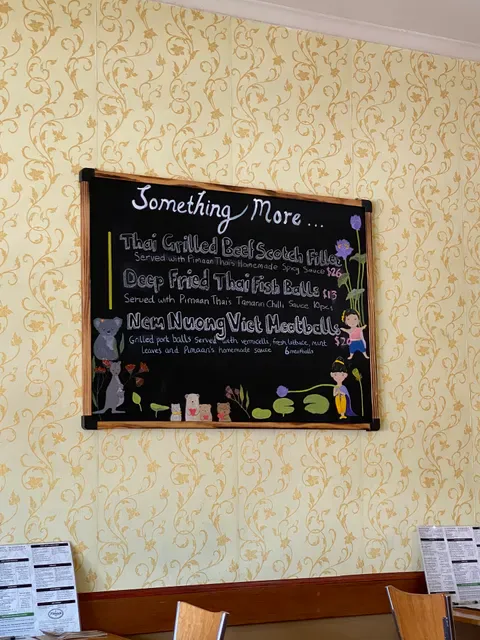 Something More ...
Thai Grilled Beef Scotch Fillet
Served with Pimaan Thai's Homemade Spicy Sauce $26
Deep Fried Thai Fish Balls $13
Served with Pimaan Thai's Tamarin Chilli Sauce 10pcs
Nem Nuong Viet Meatballs
Grilled pork balls served with vermicelli, fresh lettuce, mint $20
leaves and Pimaan's homemade sauce 6 meatballs